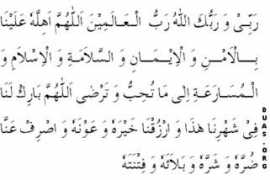 رَبِّىْ وَ رَبُّكَ اللهُ رَبُّ الْعَالَمِيْنَ اَللّٰهُمَّ اَهِلَّهُ عَلَيْنَا
بِالْاَمْنِ وَ الْاِيْمَانِ وَ السَّلَامَةِ وَ الْاِسْلَامِ وَ
الْمُسَارَعَةِ اِلٰى مَا تُحِبُّ وَ تَرْضٰى اَللّٰهُمَّ بَارِكْ لَنَا
فِىْ شَهْرِنَا هٰذَا وَ ارْزُقْنَا خَيْرَهُ وَ عَوْنَهُ وَ اصْرِفْ عَنَّا
ضُرَّهُ وَ شَرَّهُ وَ بَلَائَهُ وَ فِتْنَتَهُ
DUAS.ORG